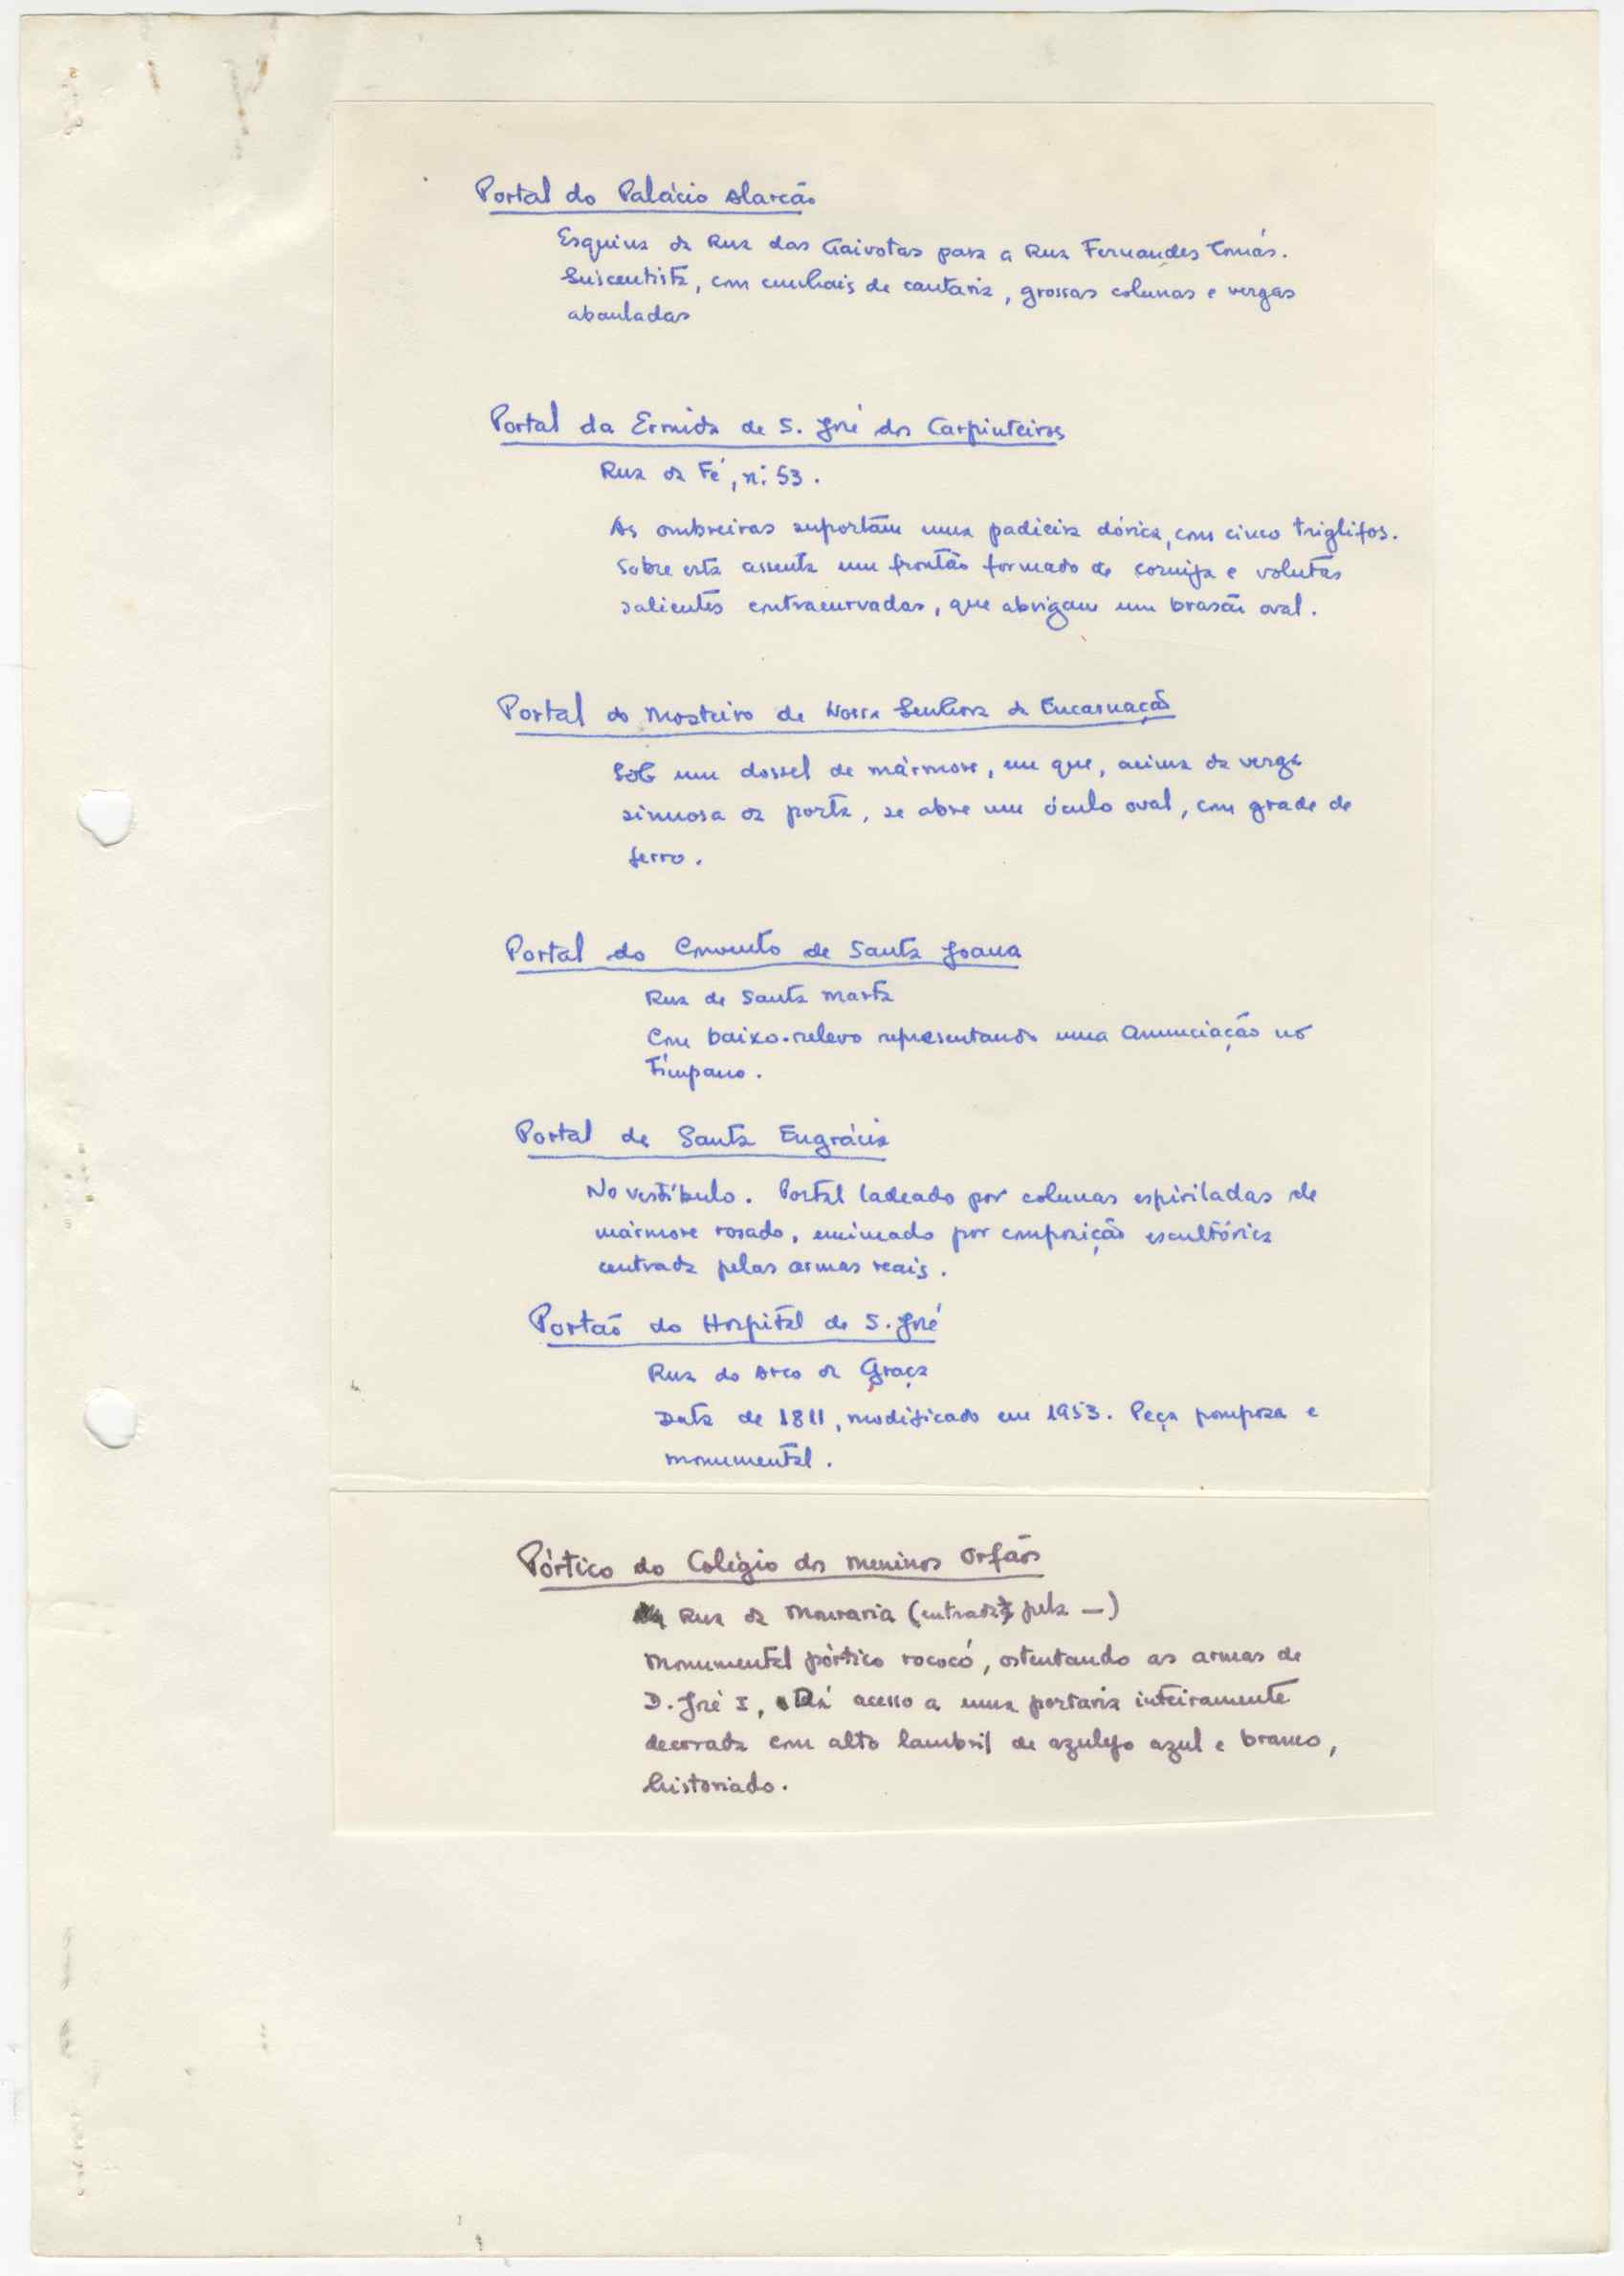 Portal do Palácio Alarcão
Esquina da Rua das Gaivotas para a Rua Fernandes Tomás.
Seiscentista, com cunhais de cantaria, grossas colunas e vergas
abauladas
Portal da Ermida de S. José dos Carpinteiros
Rua da Fé, n.º 53.
As ombreiras suportam uma padieira dórica, com cinco triglifos.
Sobre esta assenta um frontão formado de cornija e volutas
salientes contracurvadas, que abrigam um brasão oval.
Portal do Mosteiro de Nossa Senhora da Encarnação
Sob um dossel de mármore, em que, acima da verga
sinuosa da porta, se abre um óculo oval, com grade de
ferro.
Portal do Convento de Santa Joana
Rua de Santa Marta
Com baixo-relevo representando uma Anunciação no
tímpano.
Portal de Santa Engrácia
No vestíbulo. Portal ladeado por colunas espiriladas de
mármore rosado, encimado por composição escultórica
centrada pelas armas reais.
Portão do Hospital de S. José
Rua do Arco da Graça
Data de 1811, modificado em 1953. Peça pomposa e
monumental.
Pórtico do Colégio dos Meninos Orfãos
Rua da Mouraria (entrada pela —)
Monumental pórtico rococó, ostentando as armas de
D. José I, Dá acesso a uma portaria inteiramente
decorada com alto lambril de azulejo azul e branco,
historiado.